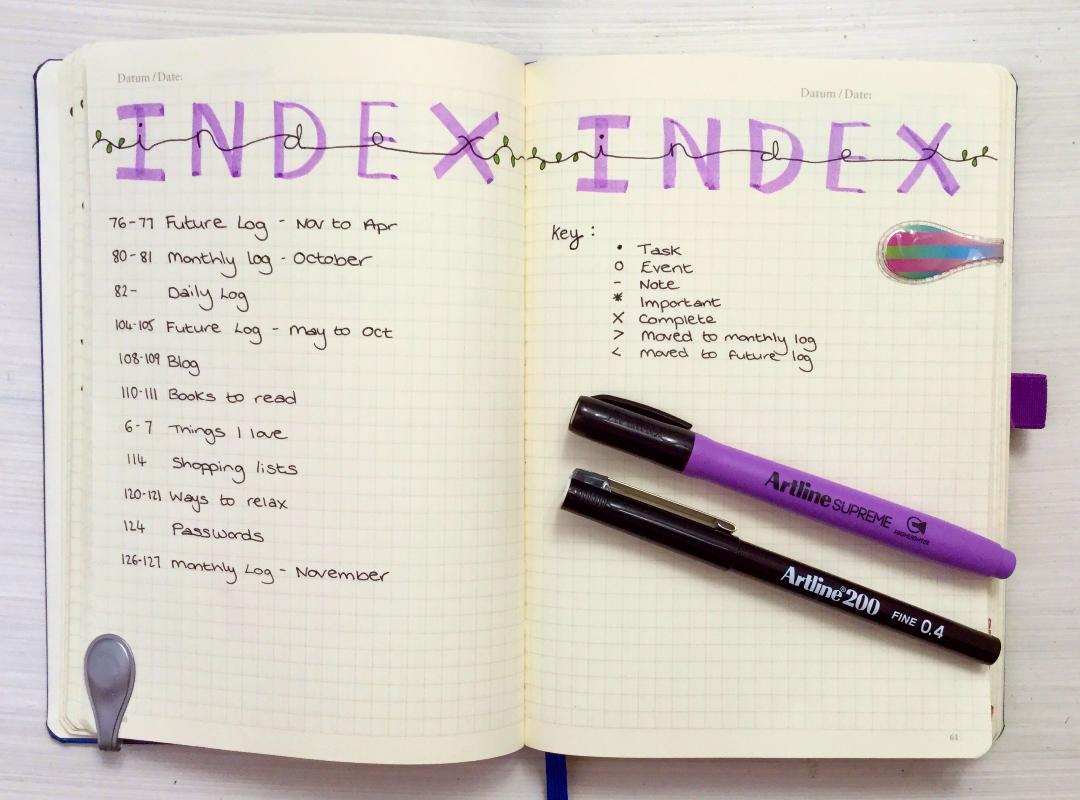 Datum / Date:
INDEX
index
76-77 Future Log - Nov to Apr
80-81 Monthly log - October
82- Daily Log
104-105 Future Log - may to Oct
108-109 Blog
110-111 Books to read
6-7 Things I love
114 Shopping lists
120-121 Ways to relax
124 Passwords
126-127 monthly Log - November
Datum / Date:
INDEX
index
Key:
• Task
o Event
- Note
* Important
x Complete
> Moved to monthly log
< moved to future log
Artline SUPREME
HIGHLIGHTER
Artline® 200 FINE 0.4
61